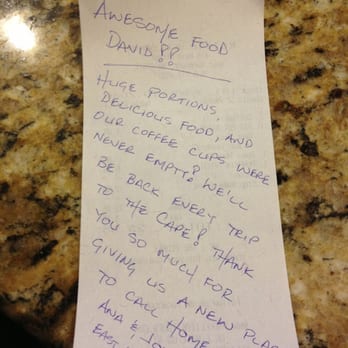 AWESOME FOOD
DAVID!!
HUGE PORTIONS,
DELICIOUS FOOD, AND
OUR COFFEE CUPS WERE
NEVER EMPTY! WE'LL
BE BACK EVERY TRIP
TO THE CAPE! THANK
YOU SO MUCH FOR
GIVING US A NEW
TO CALL HOME
ANA &
EAST